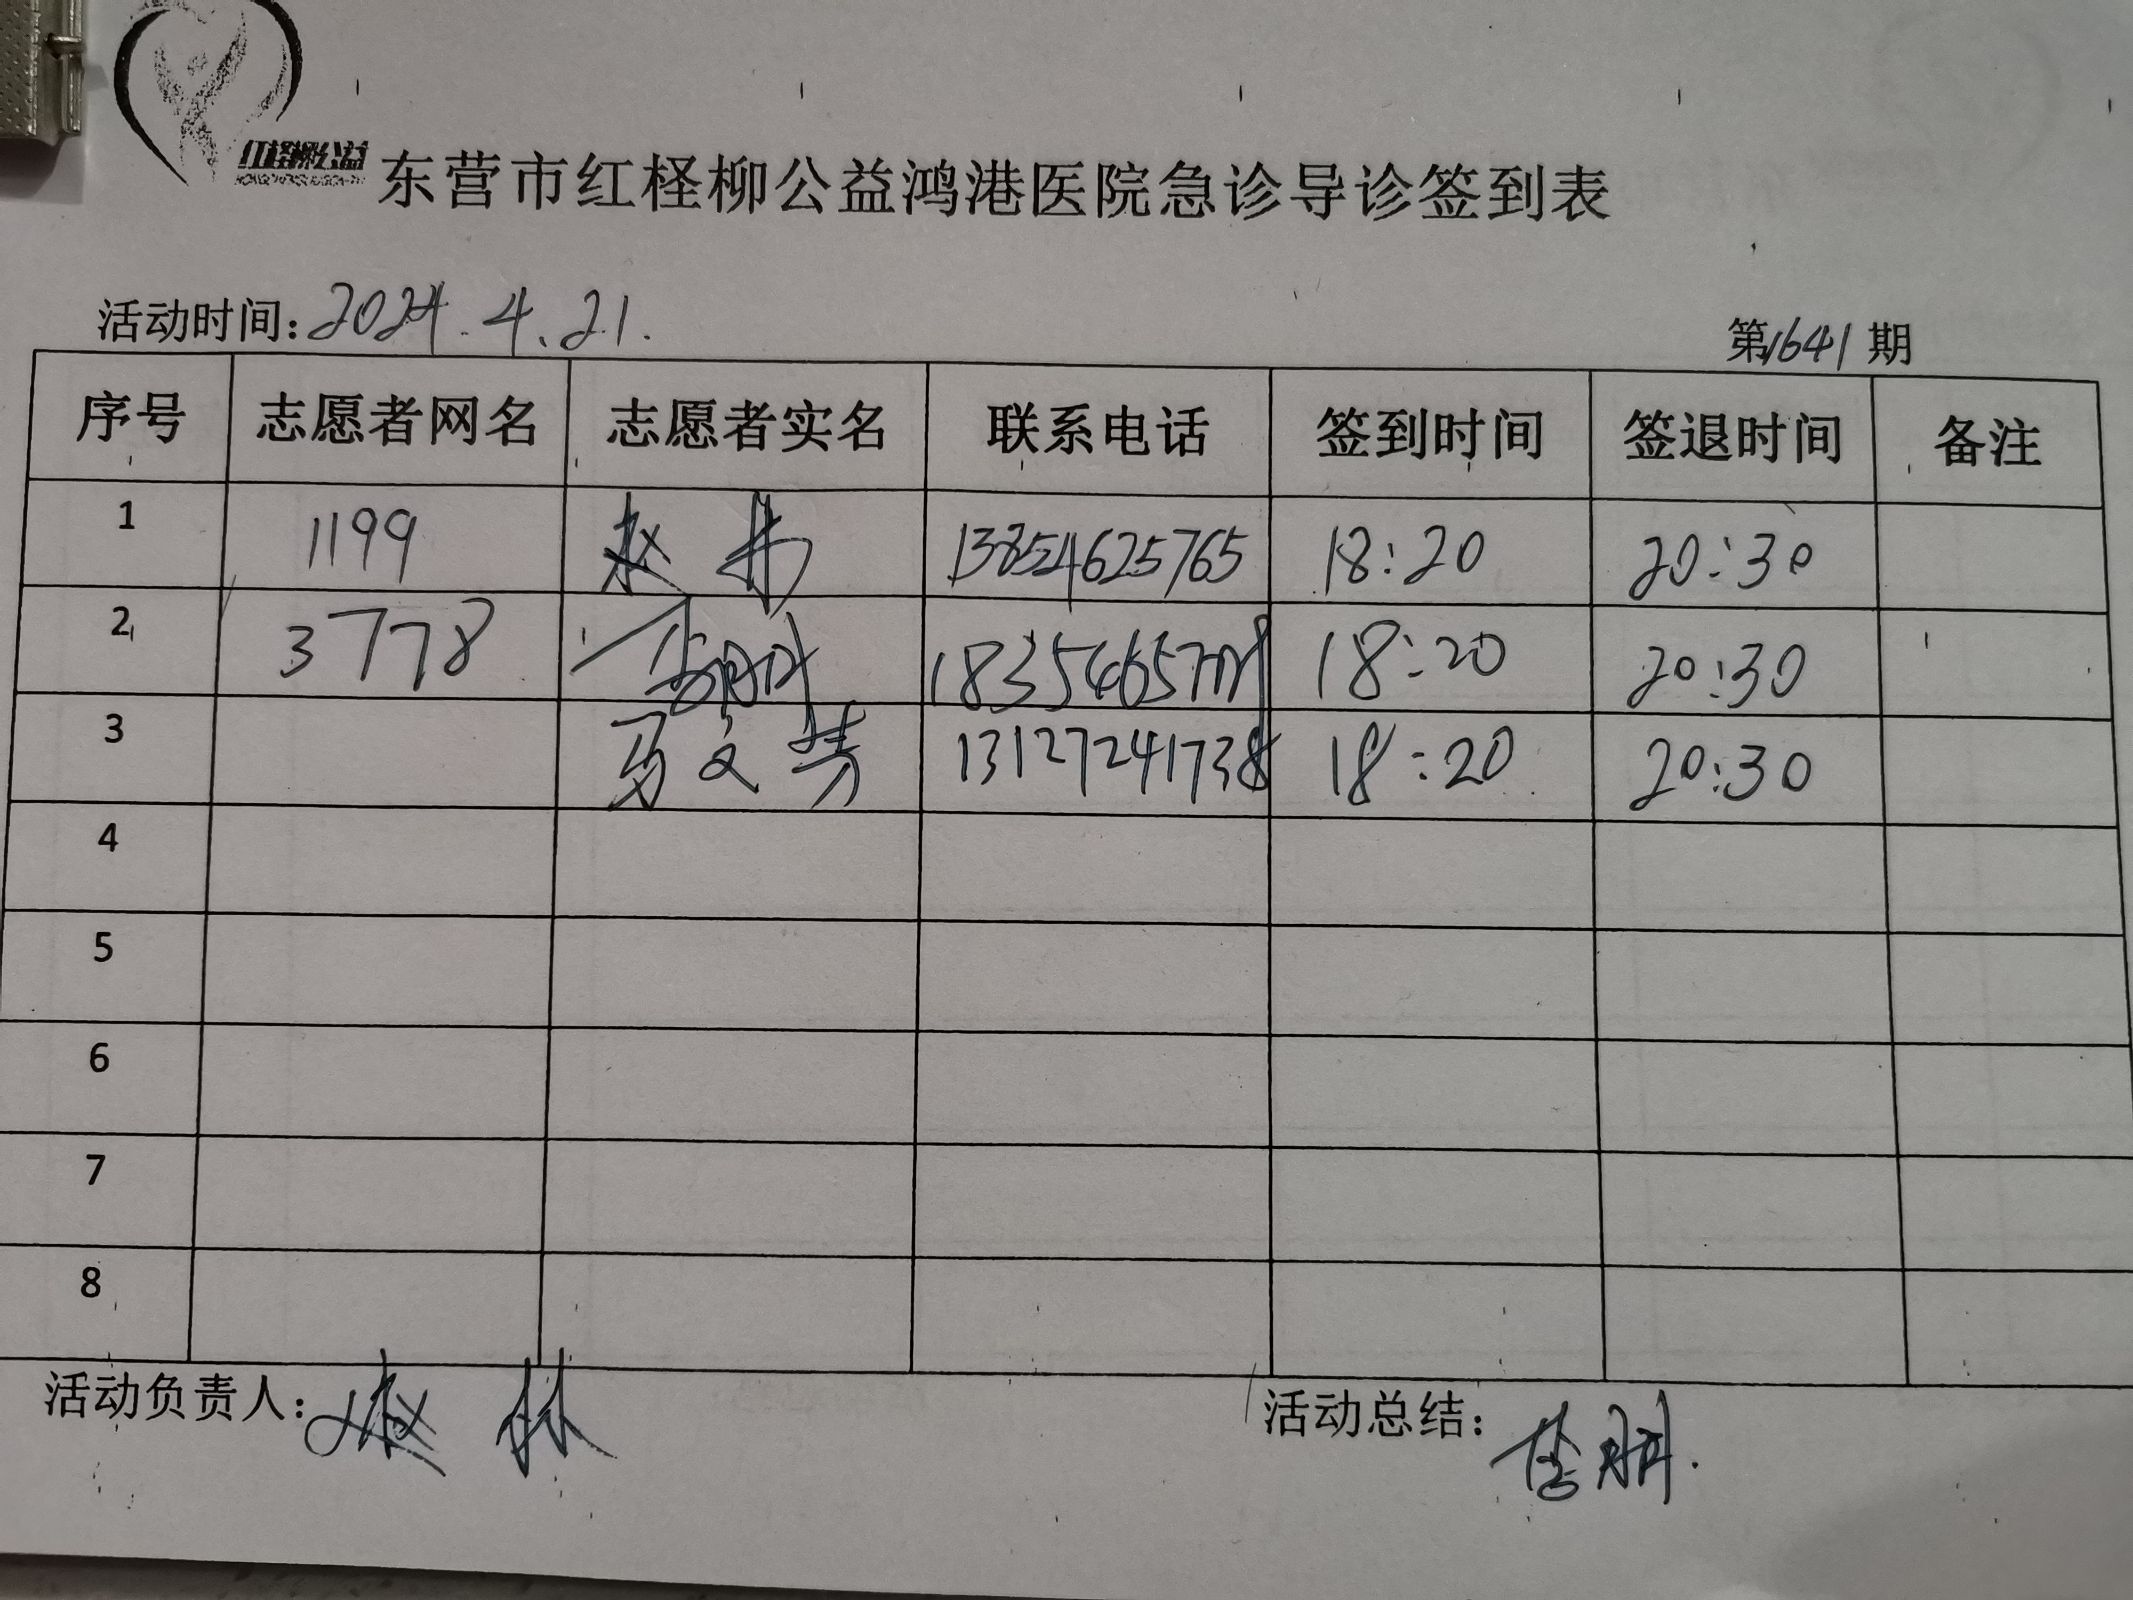 红柽柳公益
东营市红柽柳公益鸿港医院急诊导诊签到表
活动时间: 2024.4.21.
第1641期
序号 志愿者网名 志愿者实名 联系电话 签到时间 签退时间 备注
1 1199 赵林 13854625765 18:20 20:30
2 3778 18:20 20:30
3 马文芳 13127241738 18:20 20:30
4
5
6
7
8
活动负责人: 赵林
活动总结: 李朋.